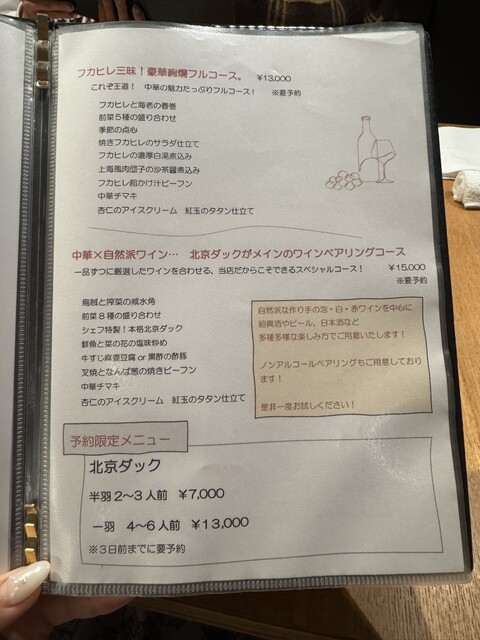 フカヒレ三昧！豪華絢爛フルコース。 ¥13,000
これぞ王道！ 中華の魅力たっぷりフルコース！ ※要予約
フカヒレと海老の春巻
前菜５種の盛り合わせ
季節の点心
焼きフカヒレのサラダ仕立て
フカヒレの濃厚白湯煮込み
上海風肉団子の沙茶醤煮込み
フカヒレ餡かけ汁ビーフン
中華チマキ
杏仁のアイスクリーム 紅玉のタタン仕立て
中華×自然派ワイン… 北京ダックがメインのワインペアリングコース
一品ずつに厳選したワインを合わせる、当店だからこそできるスペシャルコース！ ¥15,000
※要予約
烏賊と搾菜の咸水角
前菜８種の盛り合わせ
シェフ特製！本格北京ダック
鮮魚と菜の花の塩味炒め
牛すじ麻婆豆腐 or 黒酢の酢豚
叉焼となんば葱の焼きビーフン
中華チマキ
杏仁のアイスクリーム 紅玉のタタン仕立て
自然派な作り手の泡・白・赤ワインを中心に
紹興酒やビール、日本酒など
多種多様な楽しみ方でご用意いたします！
ノンアルコールペアリングもご用意しており
ます！
是非一度お試しください！
予約限定メニュー
北京ダック
半羽２～３人前 ¥7,000
一羽 ４～６人前 ¥13,000
※３日前までに要予約